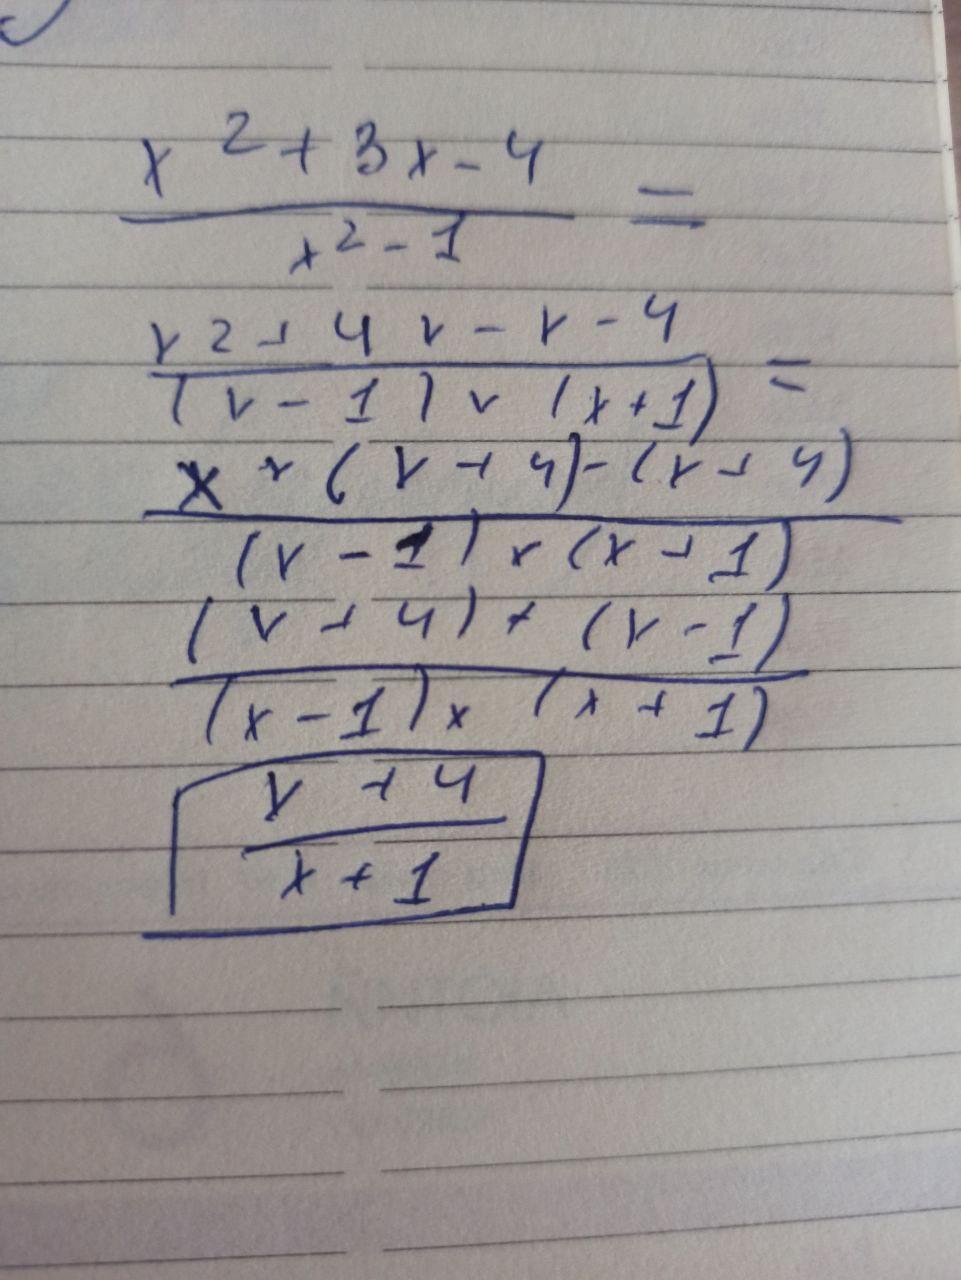 x² + 3x - 4
x² - 1 =
x² + 4x - x - 4
(x - 1) × (x + 1) =
x × (x + 4) - (x + 4)
(x - 1) × (x + 1)
(x + 4) × (x - 1)
(x - 1) × (x + 1)
x + 4
x + 1